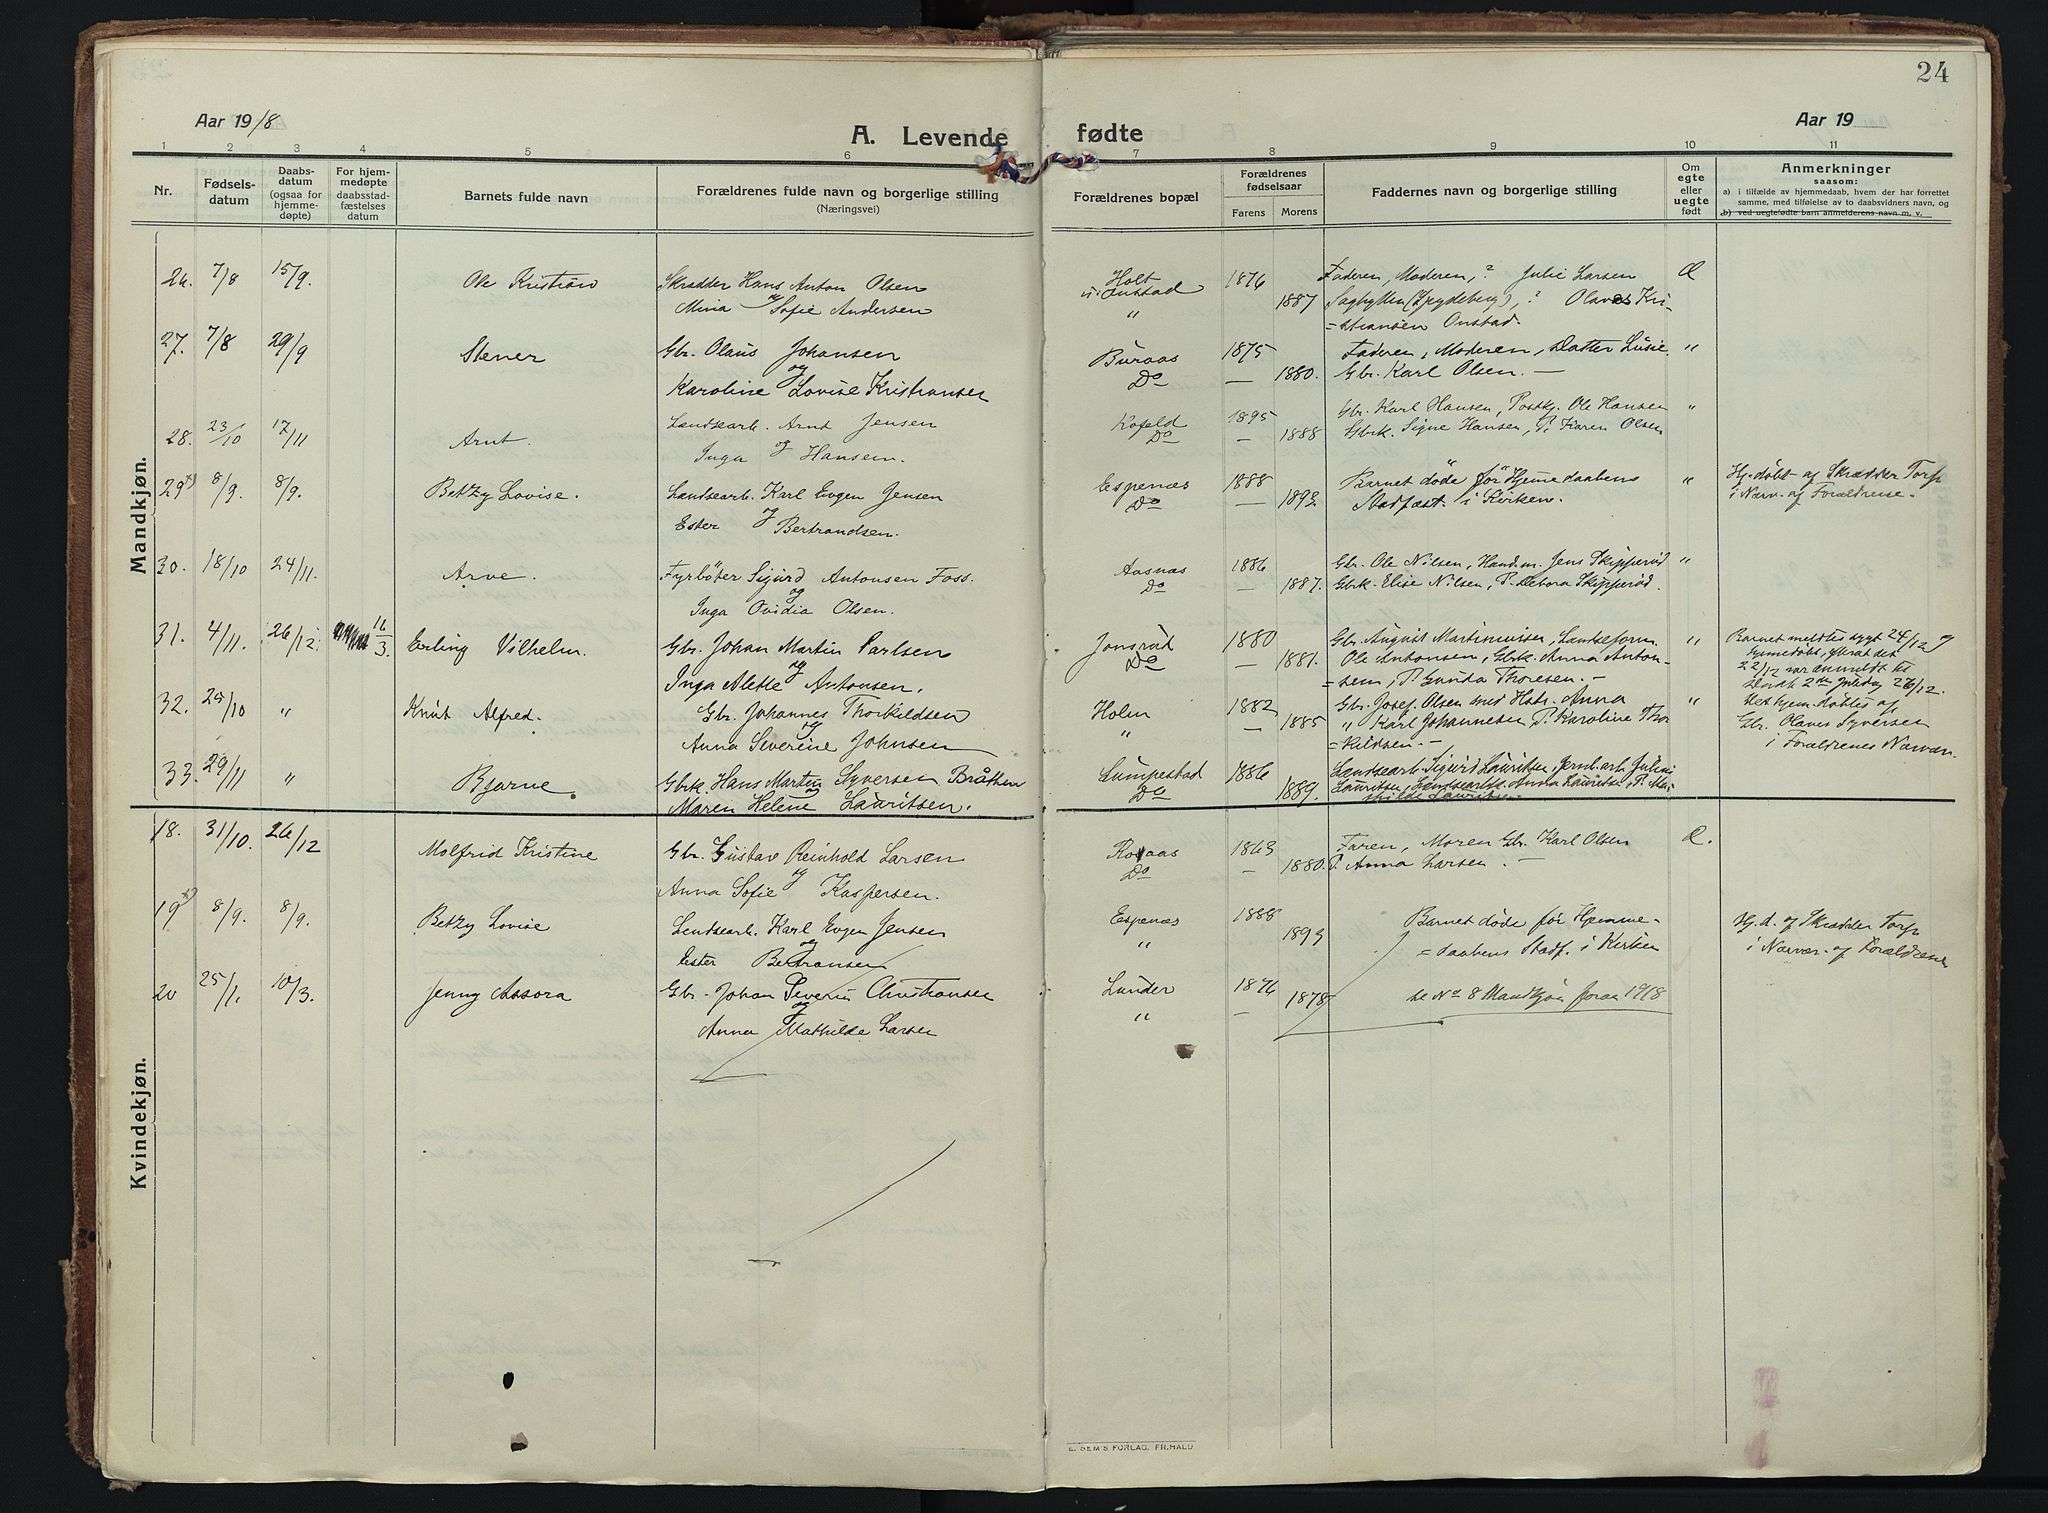 24
Aar 1918
A. Levende fødte
Aar 19
1 2 3 4 5 6 7 8 9 10 11
Nr.
Fødselsdatum
Daabsdatum (ogsaa for hjemmedøpte)
For hjemmedøpte daabsstadfæstelses datum
Barnets fulde navn
Forældrenes fulde navn og borgerlige stilling
(Næringsvei)
Forældrenes bopæl
Forældrenes fødselsaar
Farens Morens
Faddernes navn og borgerlige stilling
Om egte eller uegte født
Anmerkninger
saasom:
a) i tilfælde av hjemmedaab, hvem der har forrettet
samme, med tilføielse av to daabsvidners navn, og
b) ved uegtefødte barn anmelderens navn m. v.
Mandkjøn.
26. 7/8 15/9. Ole Kristian Skrædder Hans Anton Olsen Holt 1876 Faderen, Moderen, ? Julie Larsen
og u. Onstad
Mina Sofie Andersen " 1887 (Spydeberg), ? Olaves Kri-
=stiansen Onstad.
27. 7/8 29/9 Stener Gbr. Olaus Johansen Buraas 1875 Faderen, Moderen, Datter Lusie "
og Do — 1880. Gbr. Karl Olsen. —
Karoline Lovise Kristiansen
28. 23/10 17/11 Arnt. Landsearb. Arnt Jensen Kofeld 1895 Gbr. Karl Hansen, Postkj. Ole Hansen "
og Do — 1888 Gbrk. Signe Hansen, P. Karen Olsen
Inga Hansen.
29x) 8/9. 8/9. Betzy Lovise. Landsearb. Karl Evgen Jensen Espenæs 1888 Barnet døde før Hjemmedaabens " Hj. døbt af Skrædder Torp
og Do — 1893. Stadfæst. i Kirken. i Nærv. af Forældrene.
Ester Bertrandsen.
30. 18/10 24/11. Arve. Fyrbøter Sigurd Antonsen Foss. Aasnæs 1886 Gbr. Ole Nilsen, Handm. Jens Skipperød "
og Do — 1887. Gbrk. Elise Nilsen, P. Debora Skipperød.
Inga Ovidia Olsen.
31. 4/11. 26/12. 16/3. Erling Vilhelm. Gbr. Johan Martin Carlsen Jonsrød 1880 Gbr. August Martinuisen, Landseform. " Barnet meldtes sygt 24/12 og
og Do — 1881. Ole Antonsen, Gbrk. Anna Anton-
Inga Alette Antonsen. =sen, P. Gunda Thoresen. — 22/12 var anmeldt til
2den Juledag 26/12.
32. 25/10 " Knut Alfred. Gbr. Johannes Thorkildsen Holm 1882 Gbr. Josef Olsen med Hstr. Anna "
og " — 1885 " Karl Johannesen P. Karoline Thor
Anna Severine Johnsen =kildsen. — Gbr. Olaves Syversen
i Forældrenes Nærvær.
33. 29/11 " Bjarne. Gbrk. Hans Martin Syversen Bråthen Lumpestad 1886 Landsearb. Sigurd Lauritsen, Jernb.arb. Julius
og Do 1889. Lauritsen, Anna Lauritsen, P. Mat-
Maren Helene Lauritsen. hilde Lauritsen.
Kvindekjøn.
18. 31/10. 26/12 Molfrid Kristine Gbr. Gustav Reinhold Larsen Rosaas 1863 Faren, Moren Gbr. Karl Olsen
og Do — 1880. P. Anna Larsen. —
Anna Sofie Kaspersen.
19x) 8/9. 8/9. Betzy Lovise Landsearb. Karl Evgen Jensen Espenæs 1888 Barnet døde før Hjemme= Hj. d. af Skrædder Torp
og " 1893 =daabens Stadf. i Kirken i Nærvær. af Forældrene
Ester Bertransen
20 25/1. 10/3. Jenny Assora Gbr. Johan Severin Christiansen Lunder 1876 se No 8 Mandkjøn foran 1918
og " — 1878
Anna Mathilde Larsen
E. SEM'S FORLAG, FR.HALD